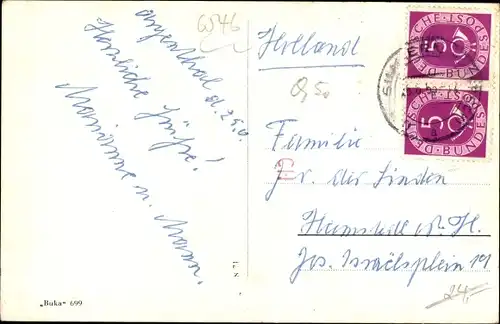 6546
Argenthal d. 25.6.
Herzliche Grüße!
Marianne u. Mann.
Holland
0,50
Familie
Fr. der Linden
Heemstede
Jos. Israëlsplein 19
24,-
"Buka" 699
DEUTSCHE BUNDESPOST
5
DEUTSCHE BUNDESPOST
5